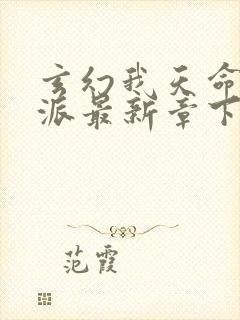 玄幻我天命
派最新章下
范霞